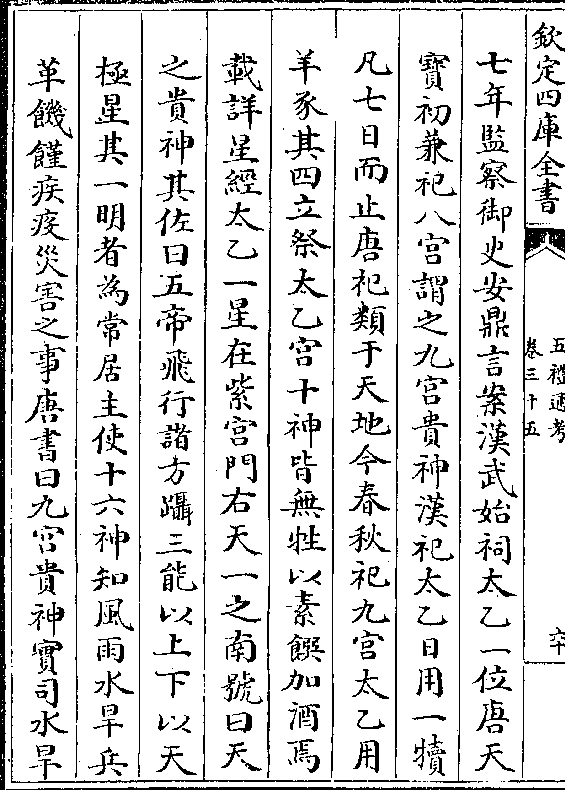 欽定四庫全書
五禮通考
卷三十五
六十
七年監察御史安鼎言案漢武始祠太乙一位唐天
寶初兼祀八宫謂之九宫貴神漢祀太乙日用一犢
凡七日而止唐祀類于天地今春秋祀九宫太乙用
羊豕其四立祭太乙宫十神皆無牲以素饌加酒焉
載詳星經太乙一星在紫宫門右天一之南號曰天
之貴神其佐曰五帝飛行諸方躡三能以上下以天
極星其一明者為常居主使十六神知風雨水旱兵
革饑饉疾疫災害之事唐書曰九宫貴神實司水旱